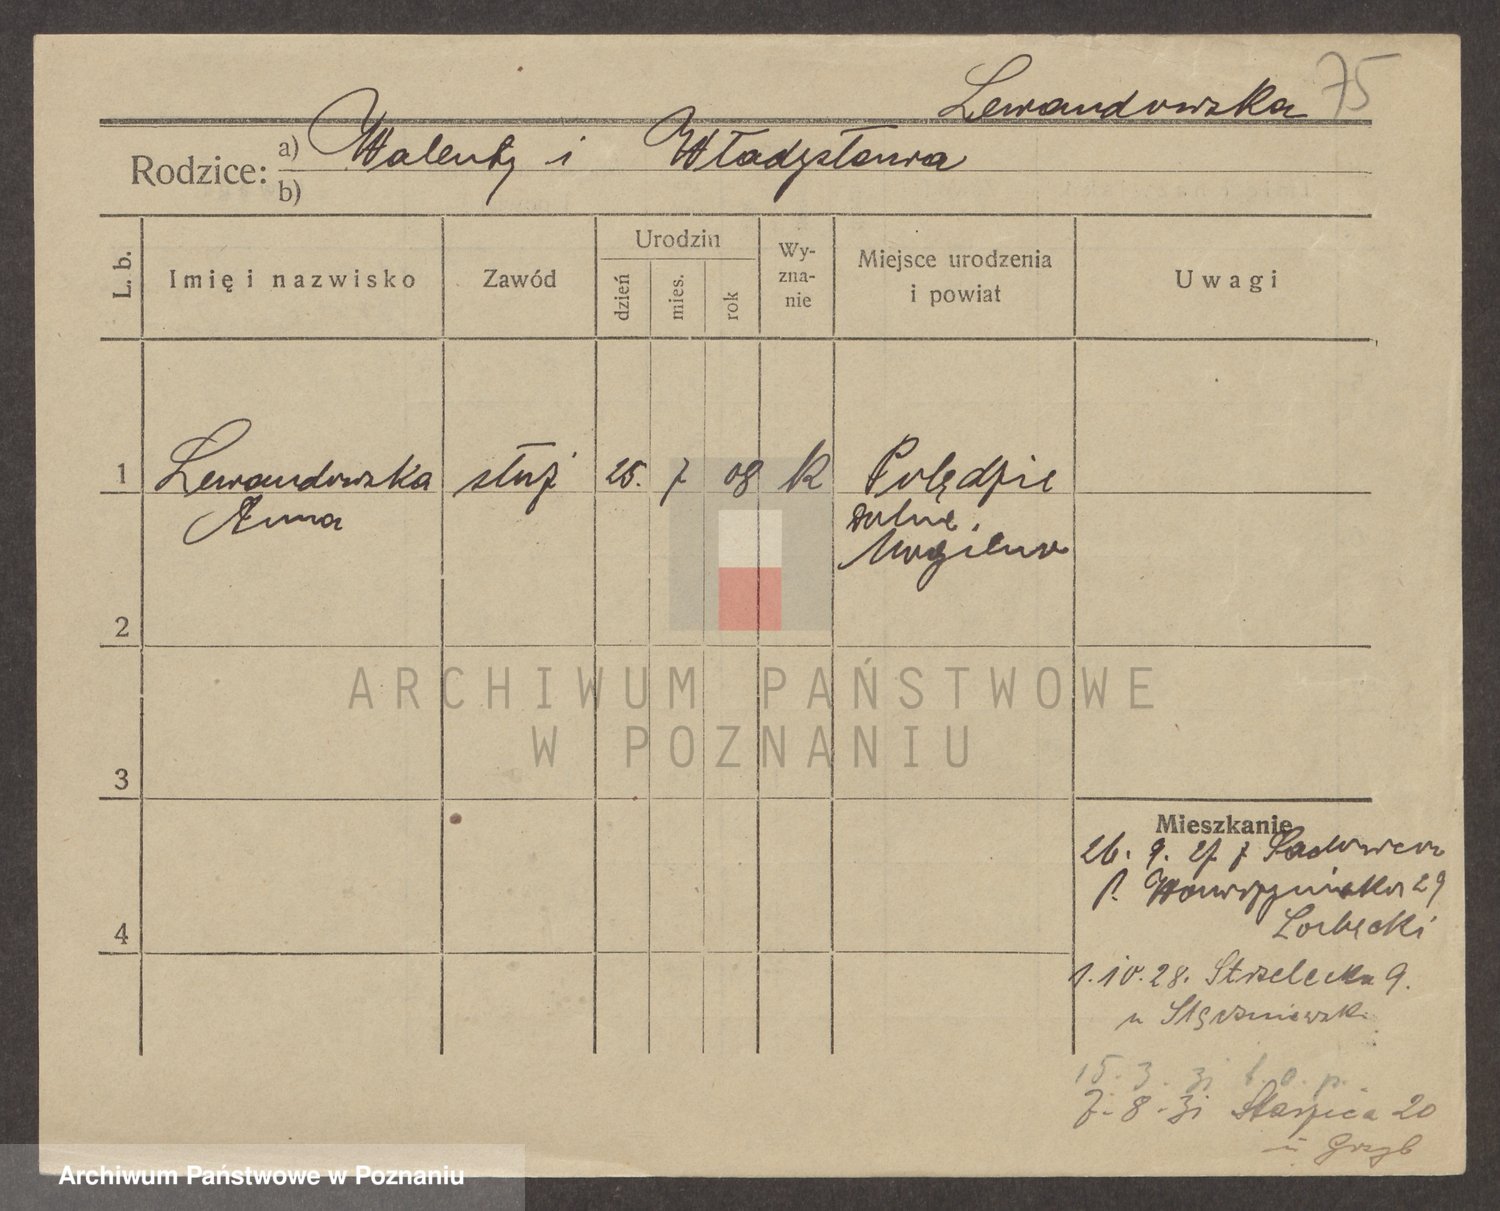 Lewandowska 75
Rodzice: a) Walenty i Władysława
b)
L. b.
Imię i nazwisko
Zawód
Urodzin
dzień
mies.
rok
Wy-
zna-
nie
Miejsce urodzenia
i powiat
Uwagi
1 Lewandowska służ 25. 7 08 k Polędzie
Anna
Mogilno
2
3
4
Mieszkanie
26. 9. 27 z
29
1.10.28. Strzelecka 9.
u
15. 3. 31 b. o. p.
7. 8. 31 20
u Grzyb
ARCHIWUM PAŃSTWOWE
W POZNANIU
Archiwum Państwowe w Poznaniu